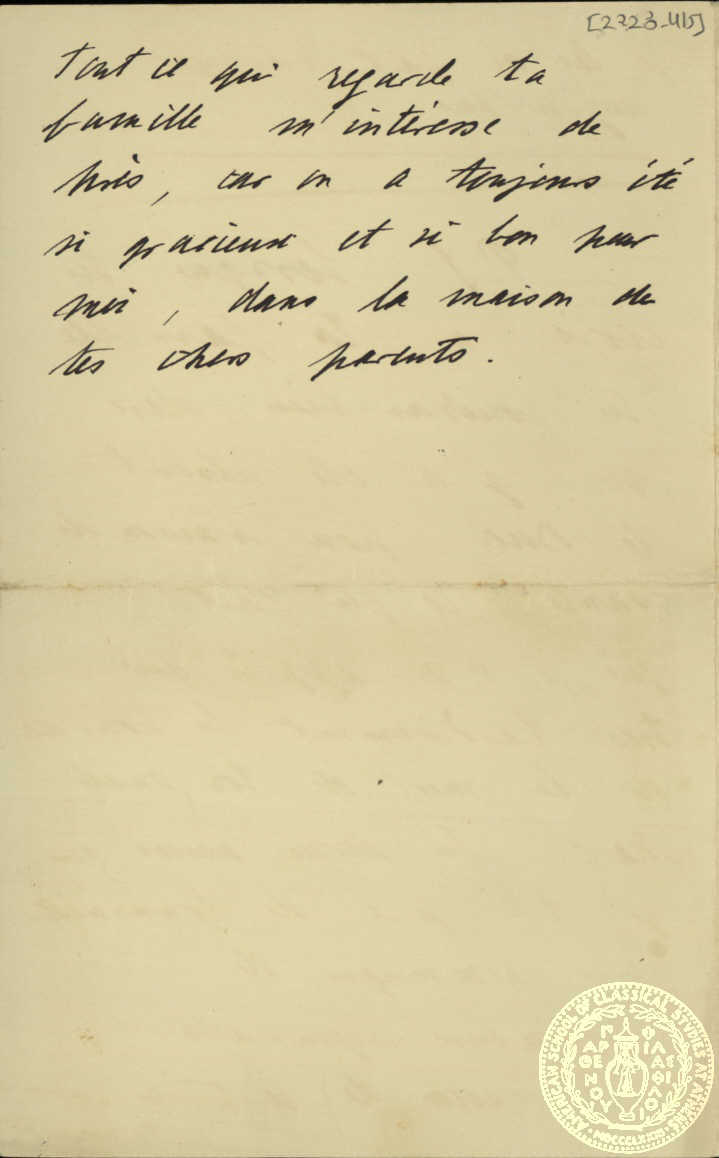 [2223-415]
Tout ce qui regarde ta
famille m'intéresse de
près, car on a toujours été
si gracieux et si bon pour
moi, dans la maison de
tes chers parents.
AMERICAN SCHOOL OF CLASSICAL STUDIES AT ATHENS
ΠΑΡΘΕΝΟΥ ΦΙΛΑΣ ΦΙΛΟΙ
MDCCCLXXXI